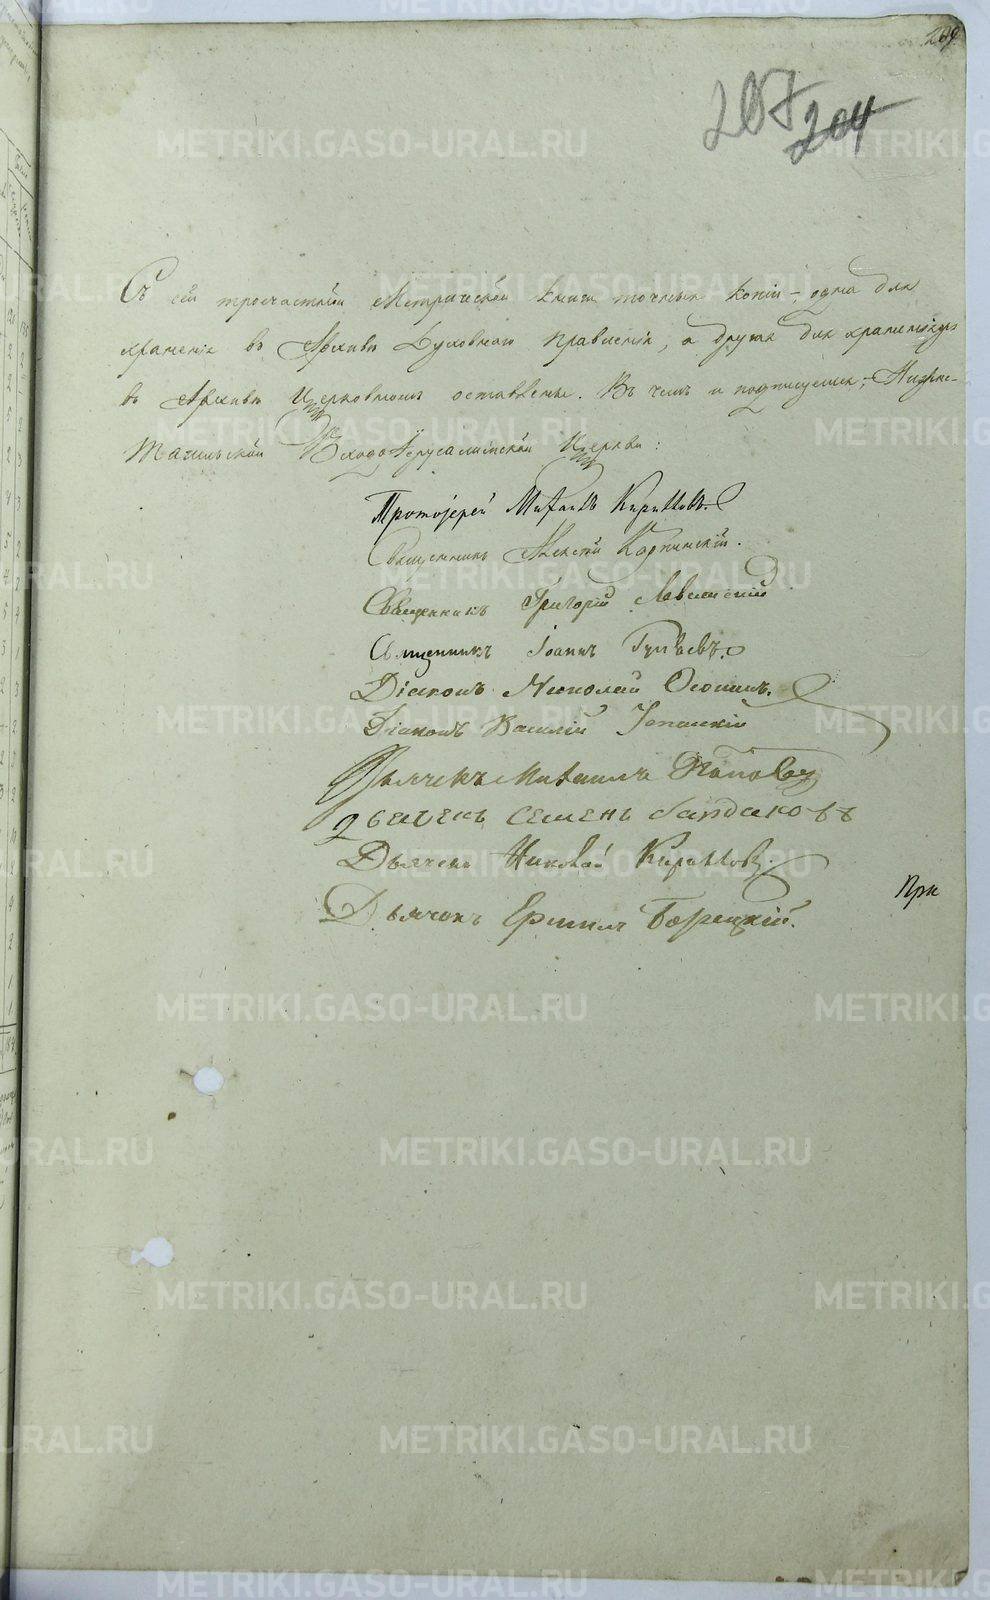 209
207 204
Съ сей троечастной Метрической книги точныя копіи -, одна для
храненія въ Архивѣ Духовнаго Правленія, а другая для храненія
въ Архивѣ Церковномъ оставлены. Въ чемъ и подписуемся; - Нижне-
Тагильской Входоіерусалимской Церкви:
Протоіерей Михаилъ Кирилловъ.
Священникъ Алексѣй Карпинскій.
Священникъ Григорій
Священникъ Іоаннъ
Діаконъ Николай
Діаконъ Василій
Дьячекъ Михаилъ Поповъ
Дьячекъ Семенъ
Дьячекъ Николай Кирилловъ.
Дьячокъ Ермилъ Борецкій.
При
METRIKI.GASO-URAL.RU